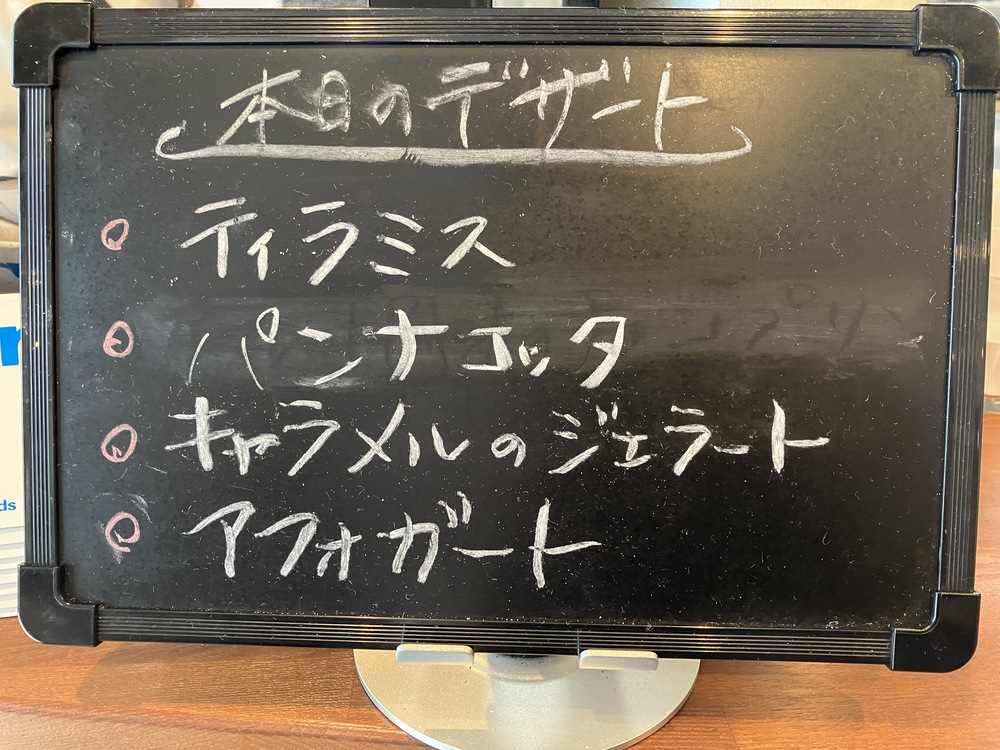 本日のデザート
ティラミス
パンナコッタ
キャラメルのジェラート
アフォガート
ds